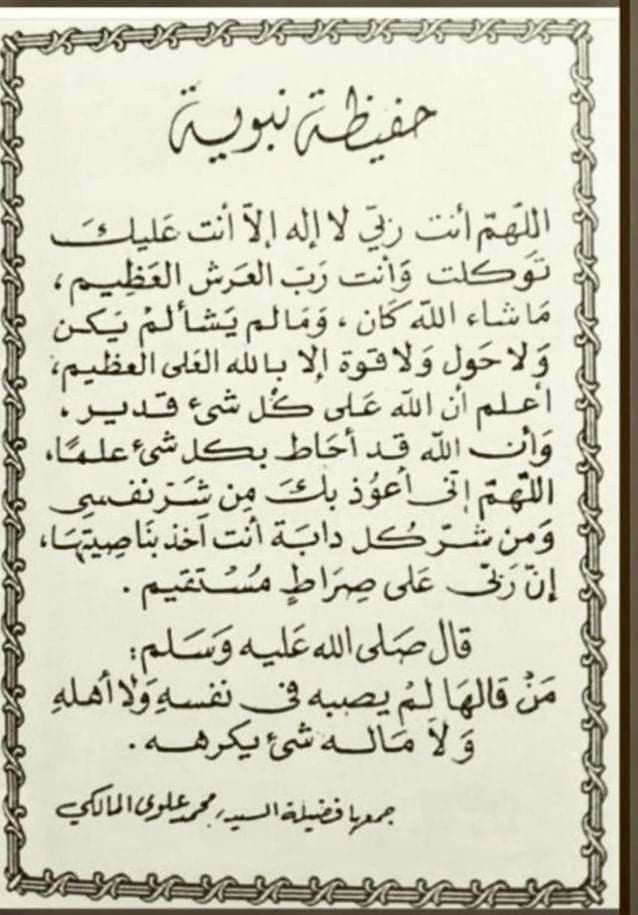 حفيظة نبوية
اللّهمّ أنت ربّي لا إله إلاّ أنت عَليك
تَوكلت وَأنت رَبّ العَرش العَظِيم ،
مَا شاء الله كَان ، وَمَا لم يَشأ لمْ يَكن
وَلا حَول وَلا قوة إلا بالله العَلى العظيم ،
أعلم أن الله عَلى كُل شئ قدير ،
وَأن الله قد أحَاط بكل شئ علمًا ،
اللّهمّ إنّى أعوُذ بكَ مِن شَرّ نفسِى
وَمن شرّ كل دابَة أنت آخذ بنَاصِيتِهَا ،
إنّ رَبّى عَلى صِرَاطٍ مُسْتقيم .
قال صَلى الله عَليه وَسَلم :
مَنْ قالهَا لمْ يصبه فى نفسهِ وَلا أهلهِ
وَلاَ مَاله شئ يكرهه .
جمعها فضيلة السيد محمد علوى المالكي